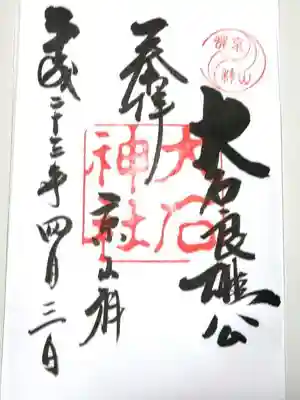 大石良雄公
奉拝
京山科
平成二十三年四月三日
大石
神社
京都
山科